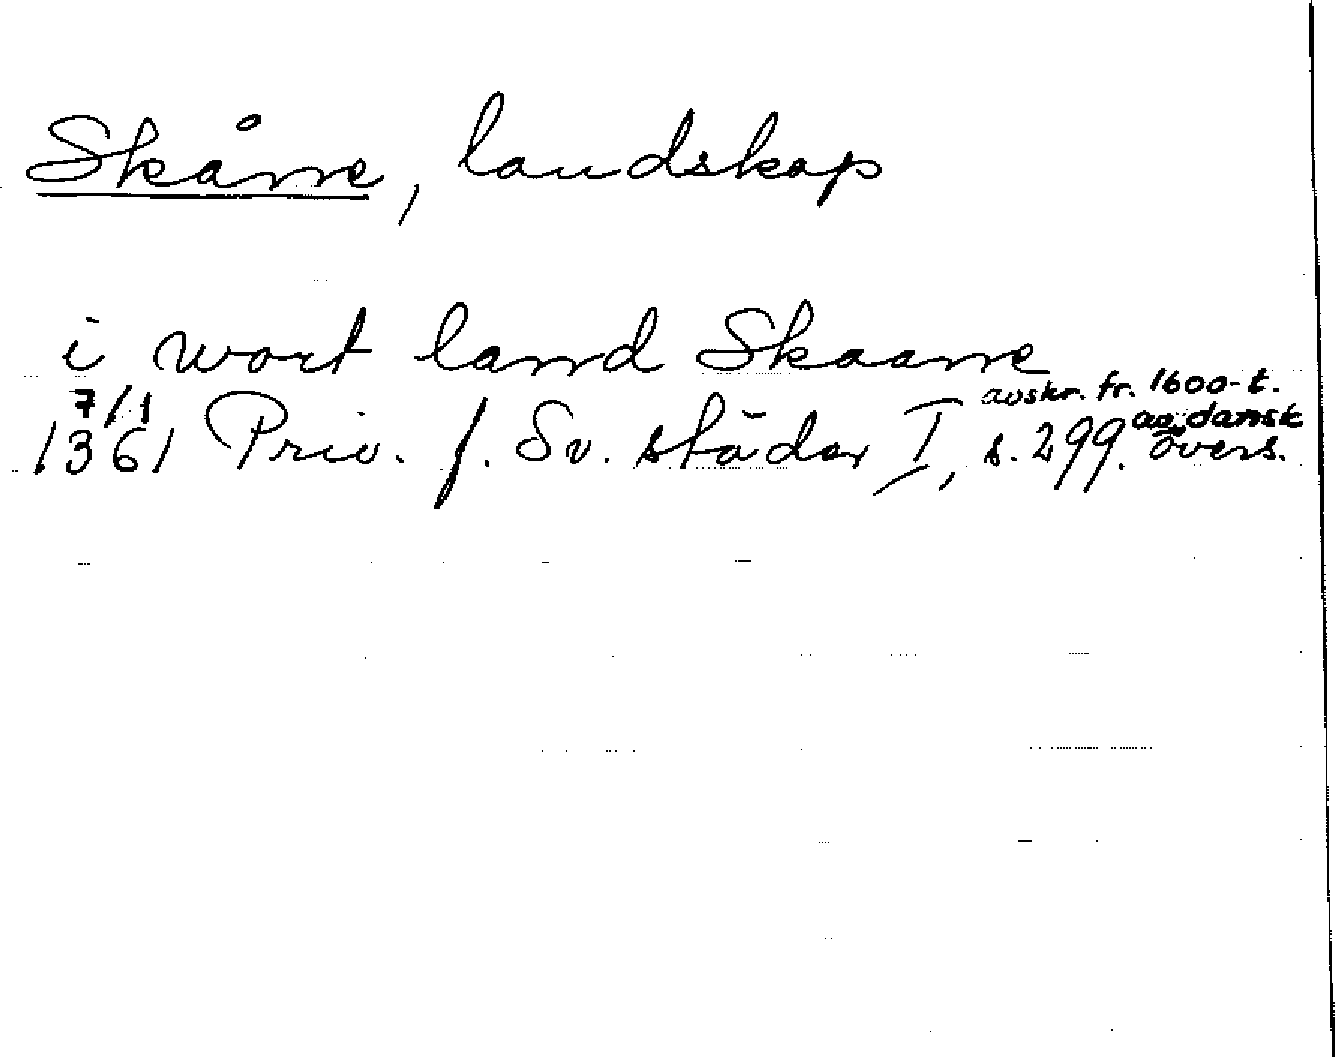 Skåne, landskap
i wort land Skaane
7/1
1361 Priv. f. Sv. städer I, s. 299. avskr. fr. 1600-t.
av dansk
övers.